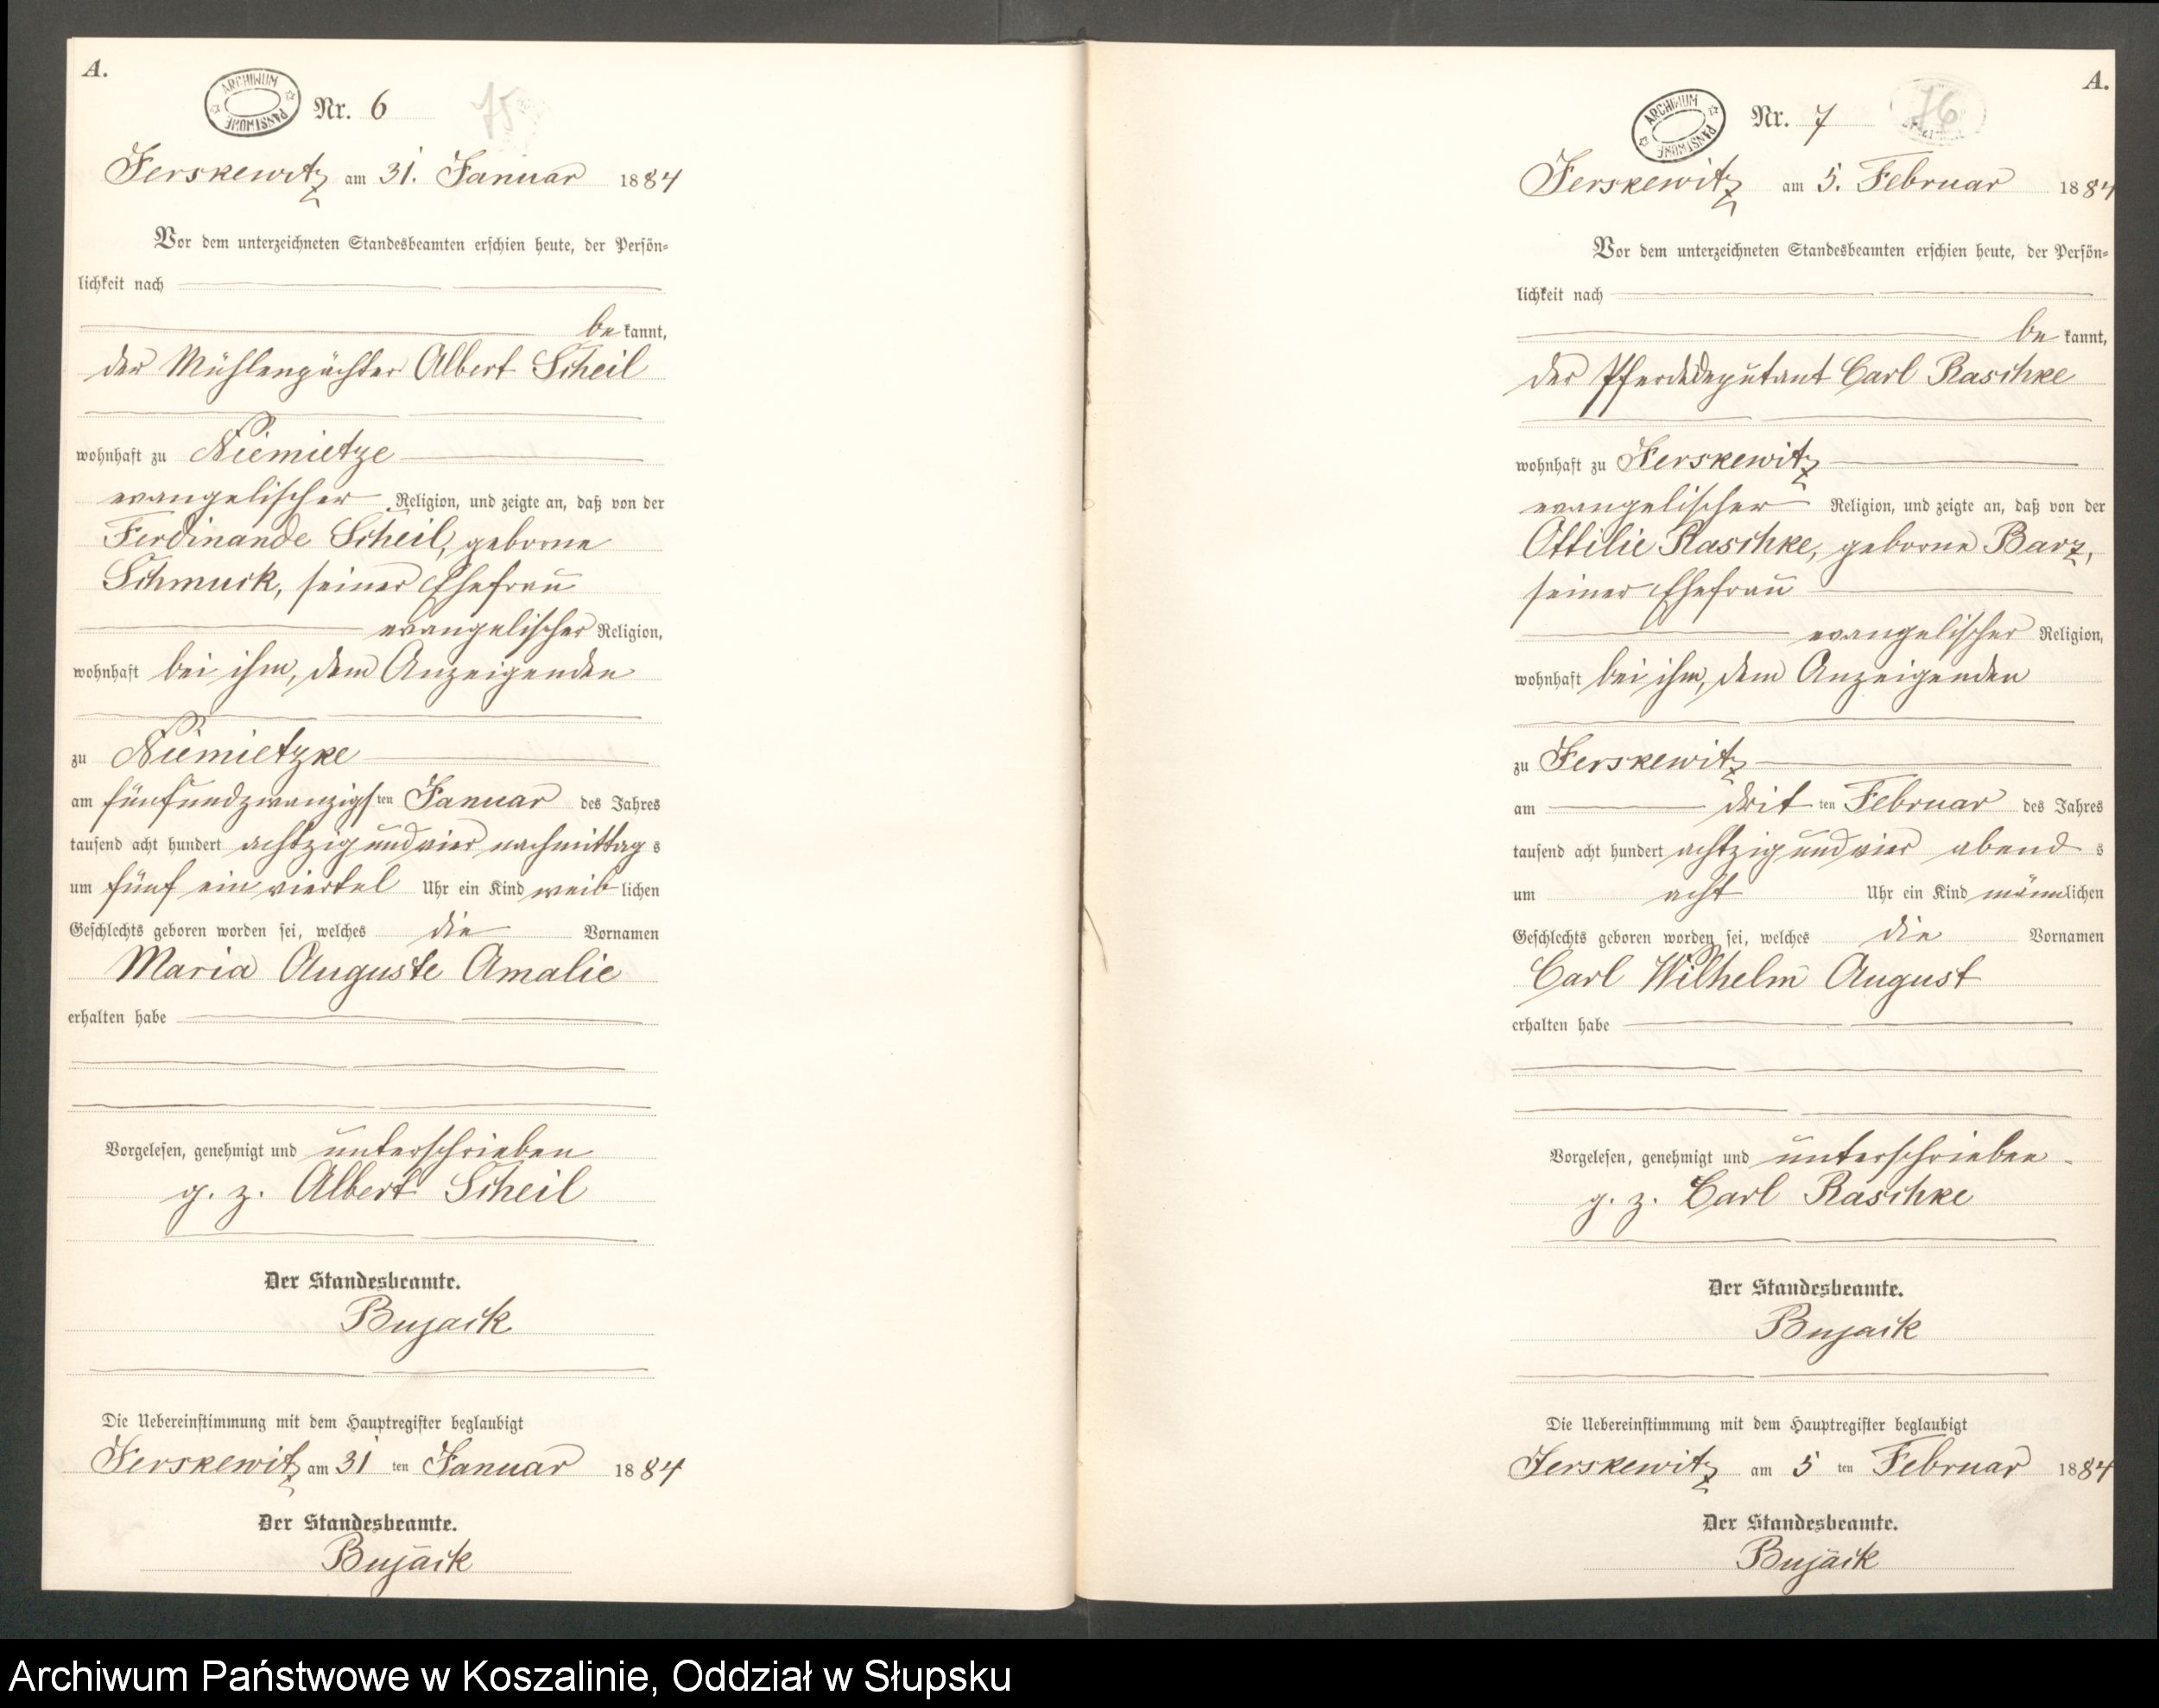 A.
ARCHIWUM PAŃSTWOWE
Nr. 6
75
Jerskewitz am 31. Januar 1884
Vor dem unterzeichneten Standesbeamten erschien heute, der Persön-
lichkeit nach
be kannt,
der Mühlenpächter Albert Scheil
wohnhaft zu Niemietze
evangelischer Religion, und zeigte an, daß von der
Ferdinande Scheil, geborne
Schmuck, seiner Ehefrau
evangelischer Religion,
wohnhaft bei ihm, dem Anzeigenden
zu Niemietzke
am fünfundzwanzigsten Januar des Jahres
tausend acht hundert achtzig und vier nachmittags
um fünf ein viertel Uhr ein Kind weiblichen
Geschlechts geboren worden sei, welches die Vornamen
Maria Auguste Amalie
erhalten habe
Vorgelesen, genehmigt und unterschrieben
g. z. Albert Scheil
Der Standesbeamte.
Bujack
Die Uebereinstimmung mit dem Hauptregister beglaubigt
Jerskewitz am 31 ten Januar 1884
Der Standesbeamte.
Bujack
A.
ARCHIWUM PAŃSTWOWE
Nr. 7
76
Jerskewitz am 5. Februar 1884
Vor dem unterzeichneten Standesbeamten erschien heute, der Persön-
lichkeit nach
be kannt,
der Pferdedeputant Carl Raschke
wohnhaft zu Jerskewitz
evangelischer Religion, und zeigte an, daß von der
Ottilie Raschke, geborne Barz,
seiner Ehefrau
evangelischer Religion,
wohnhaft bei ihm, dem Anzeigenden
zu Jerskewitz
am dritten Februar des Jahres
tausend acht hundert achtzig und vier abends
um acht Uhr ein Kind männlichen
Geschlechts geboren worden sei, welches die Vornamen
Carl Wilhelm August
erhalten habe
Vorgelesen, genehmigt und unterschrieben
g. z. Carl Raschke
Der Standesbeamte.
Bujack
Die Uebereinstimmung mit dem Hauptregister beglaubigt
Jerskewitz am 5 ten Februar 1884
Der Standesbeamte.
Bujack
Archiwum Państwowe w Koszalinie, Oddział w Słupsku